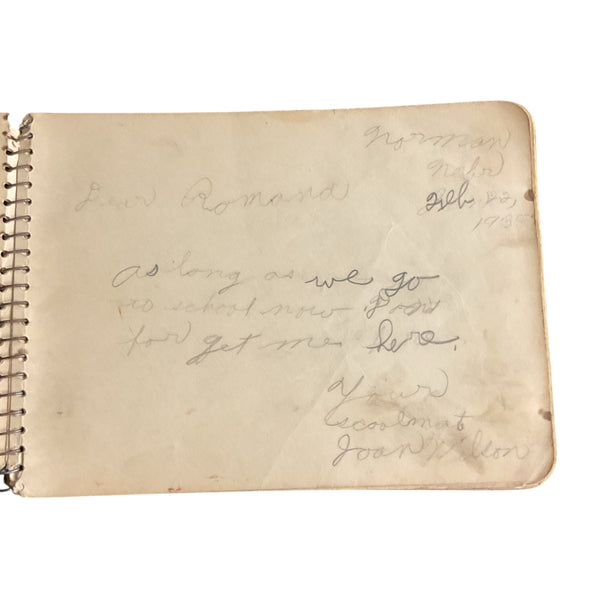 Norman
Nebr
Feb 22,
1935
Dear Romana
as long as we go
to school now Don't
for get me here.
Your
scoolmat
Joan Wilson